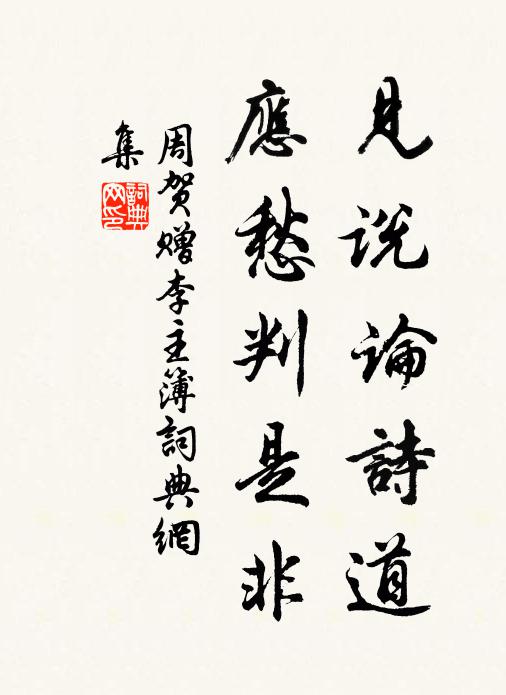 見説論詩道
應愁判是非
周贺赠李主簿詞典網
集
詞典
网印